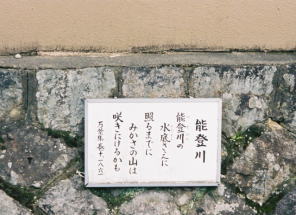 能登川
能登川の
水底さえに
照るまでに
みかさの山は
咲きにけるかも
万葉集 巻十 一八六一